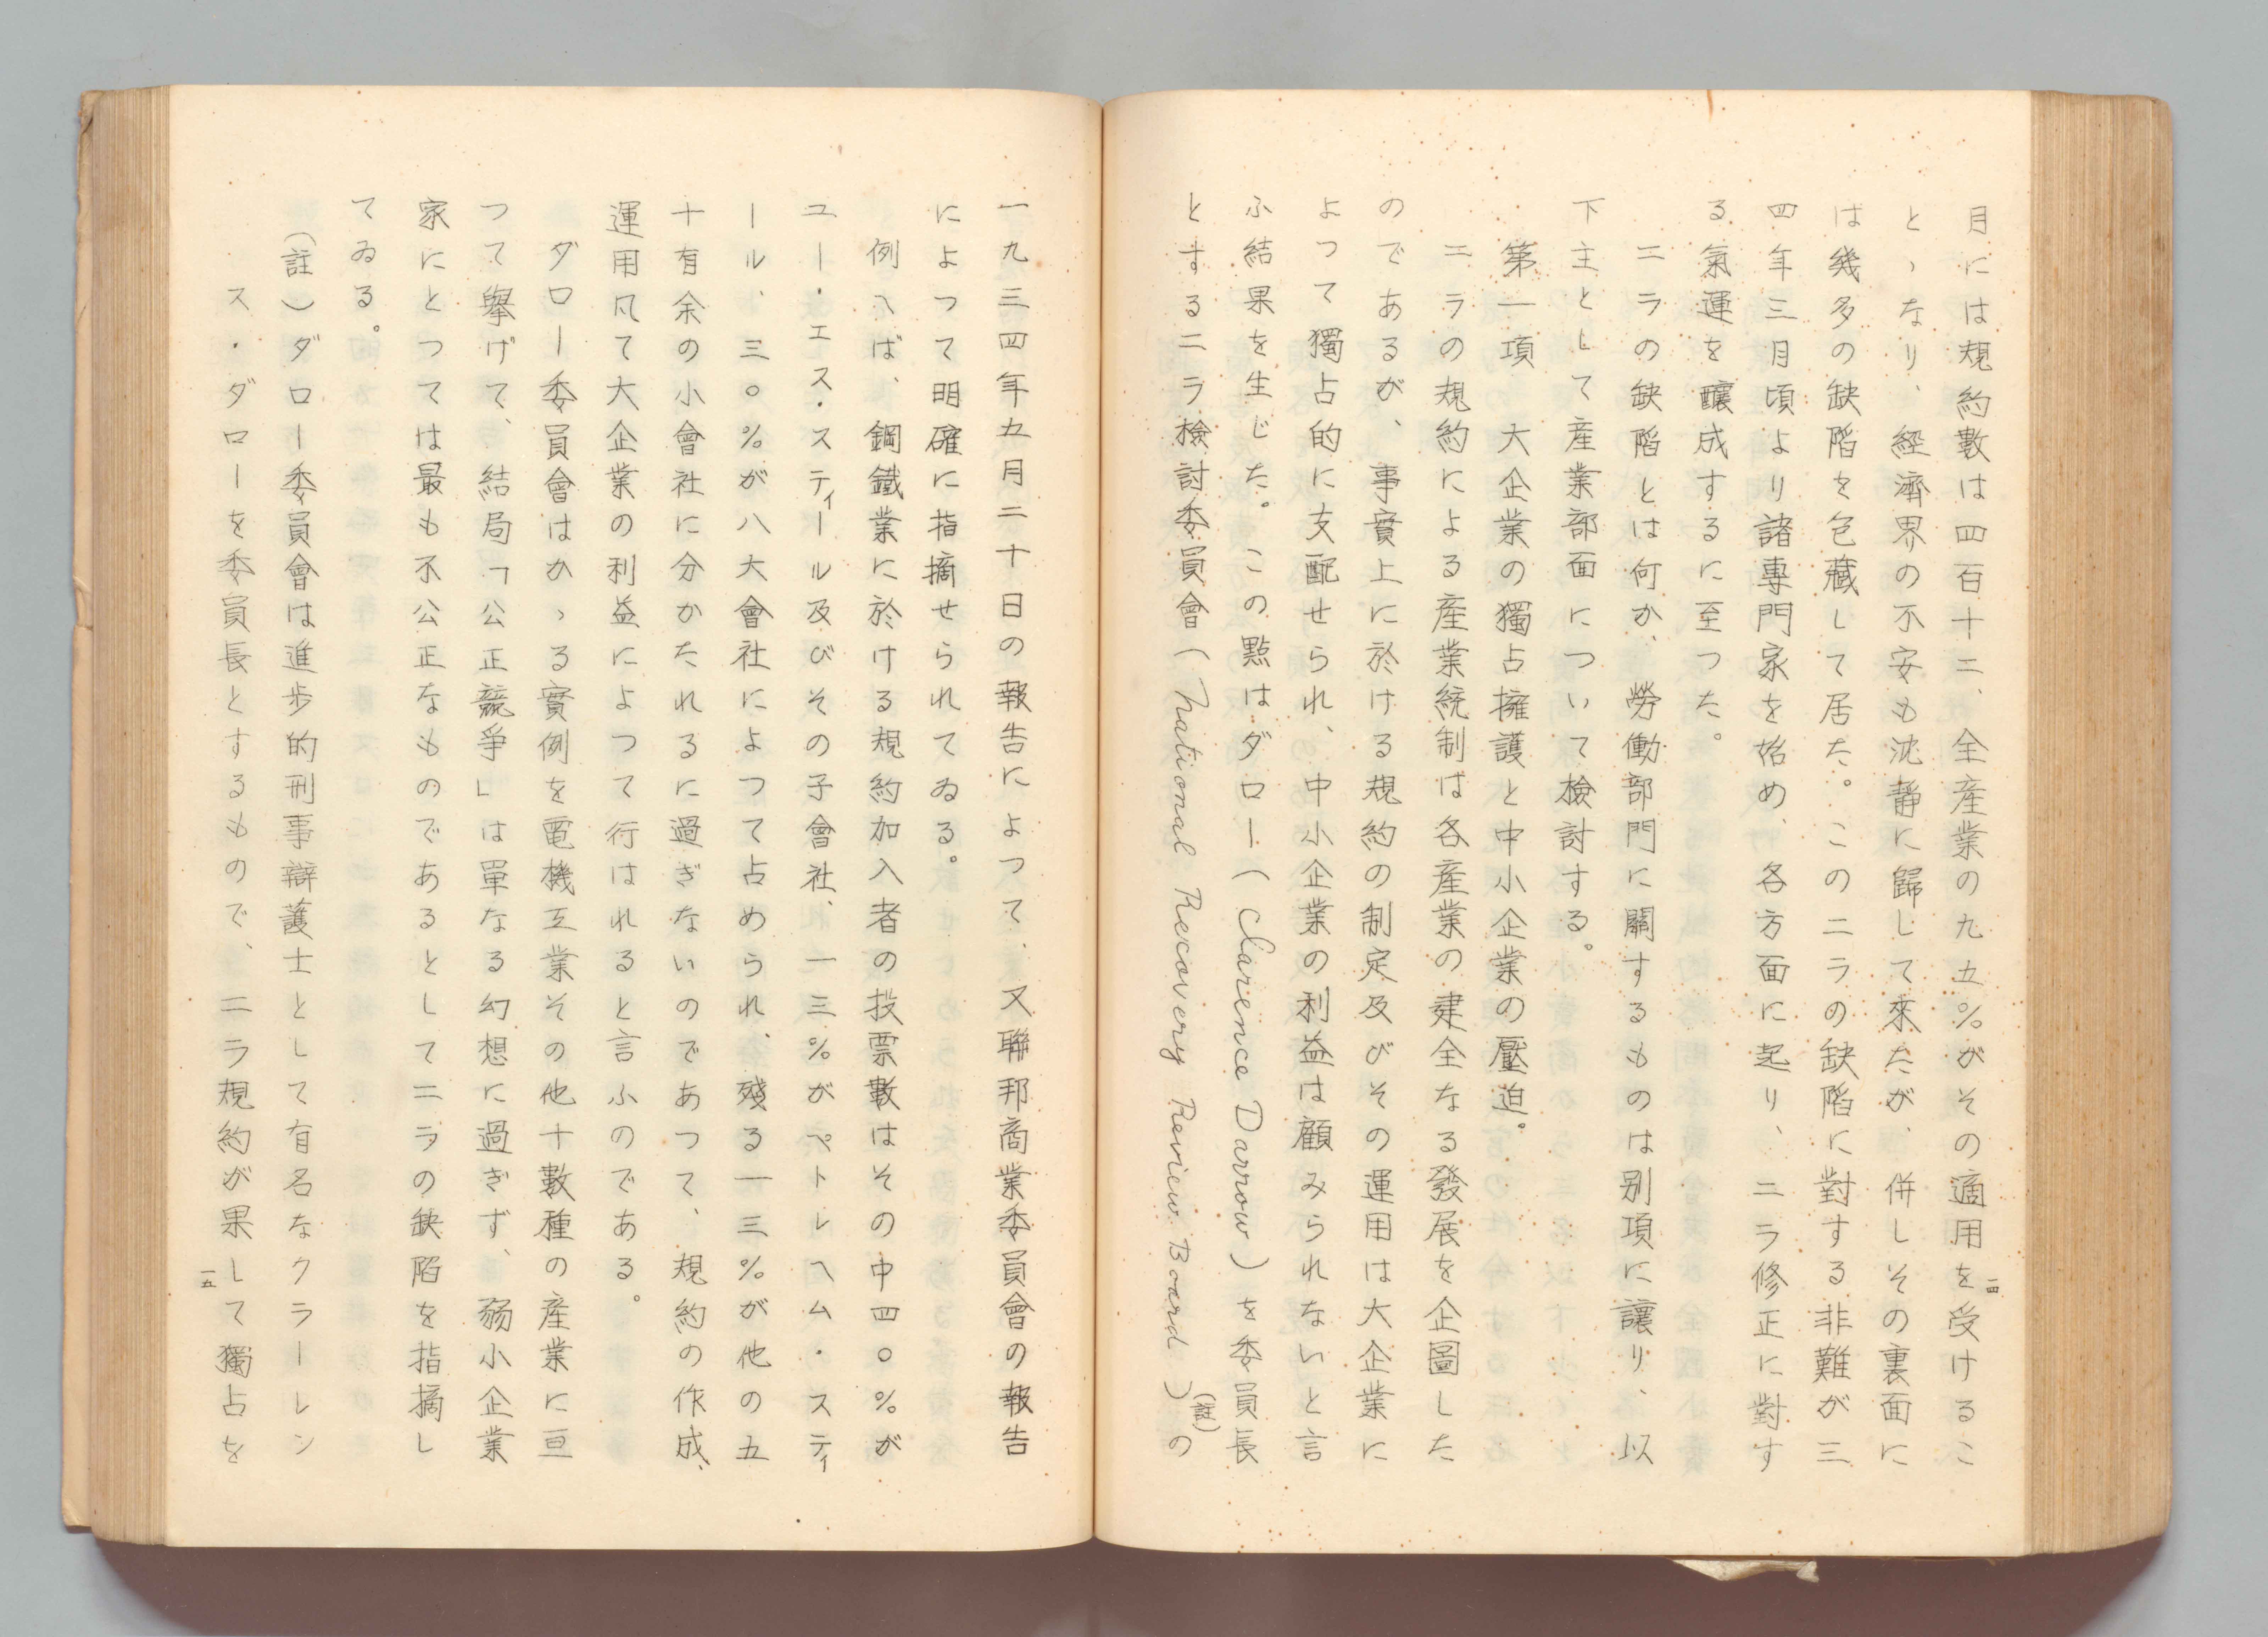 月には規約數は四百十二、全産業の九五％がその適用を受けるこ
とゝなり、経濟界の不安も沈靜に歸して來たが、併しその裏面に
は幾多の缺陷を包藏して居た。このニラの缺陷に對する非難が三
四年三月頃より諸專門家を始め、各方面に起り、ニラ修正に對す
る氣運を釀成するに至つた。
ニラの缺陷とは何か、勞働部門に關するものは別項に讓り、以
下主として産業部面について檢討する。
第一項　大企業の獨占擁護と中小企業の壓迫。
ニラの規約による産業統制は各産業の建全なる發展を企圖した
のであるが、事實上に於ける規約の制定及びその運用は大企業に
よつて獨占的に支配せられ、中小企業の利益は顧みられないと言
ふ結果を生じた。この點はダロー（Clarence Darrow）を委員長
とするニラ檢討委員會（National Recovery Review Board）(註)の
一四
一九三四年五月二十日の報告によつて、又聯邦商業委員會の報告
によつて明確に指摘せられてゐる。
例へば、鋼鐵業に於ける規約加入者の投票數はその中四〇％が
ユー・エス・スティール及びその子會社、一三％がペトレヘム・スティ
ール、三〇％が八大會社によつて占められ、殘る一三％が他の五
十有余の小會社に分かたれるに過ぎないのであつて、規約の作成、
運用凡て大企業の利益によつて行はれると言ふのである。
ダロー委員會はかゝる實例を電機工業その他十數種の産業に亘
つて擧げて、結局「公正競爭」は單なる幻想に過ぎず、弱小企業
家にとつては最も不公正なものであるとしてニラの缺陷を指摘し
てゐる。
（註）ダロー委員會は進步的刑事辯護士として有名なクラーレン
ス・ダローを委員長とするもので、ニラ規約が果して獨占を
一五